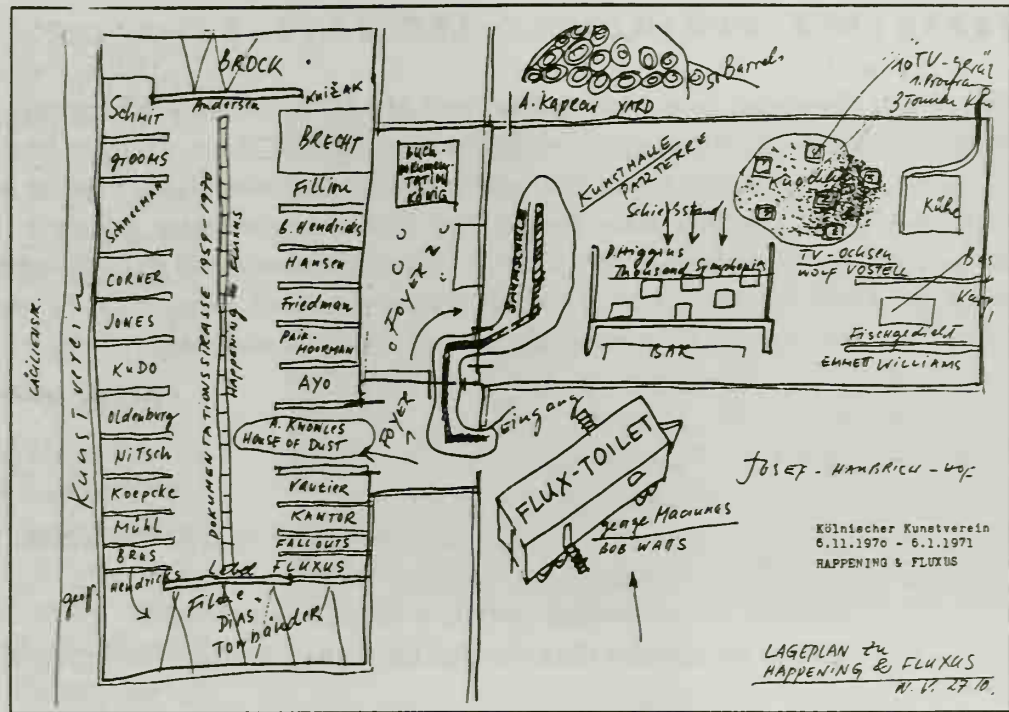 BROCK
Andersen
KNIŽAK
Schmit
GROOMS
Schneeman
CORNER
JONES
KUDO
Oldenburg
NiTsch
Koepcke
Mühl
BRUS
Hendricks
geoff.
CÄCILIENSTR.
Kunstverein
DOKUMENTATIONSSTRASSE 1959-1970
HAPPENING & FLUXUS
BRECHT
Filliou
B. Hendricks
HANSEN
Friedman
PAIK-
MOORMAN
AYO
A. KNOWLES
HOUSE OF DUST
VAUTIER
KANTOR
FALLOUTS
FLUXUS
Lebel
Filme -
DIAS
TONBÄNDER
BUCH
DOKUMEN-
TATION
KÖNIG
FOYER
FOYER
Eingang
A. KAPROW YARD
Barrels
KUNSTHALLE
PARTERRE
Schießstand
D. Higgins
Thousand Symphonies
BAR
10 TV-Gerät
1. Program
3 Tonnen
TV-OCHSEN
Wolf VOSTELL
Kühe
Fischgedicht
EMMETT WILLIAMS
FLUX-TOILET
George Maciunas
BOB WATTS
JOSEF-HAUBRICH-HOF
Kölnischer Kunstverein
6.11.1970 - 6.1.1971
HAPPENING & FLUXUS
LAGEPLAN zu
HAPPENING & FLUXUS
27 10.